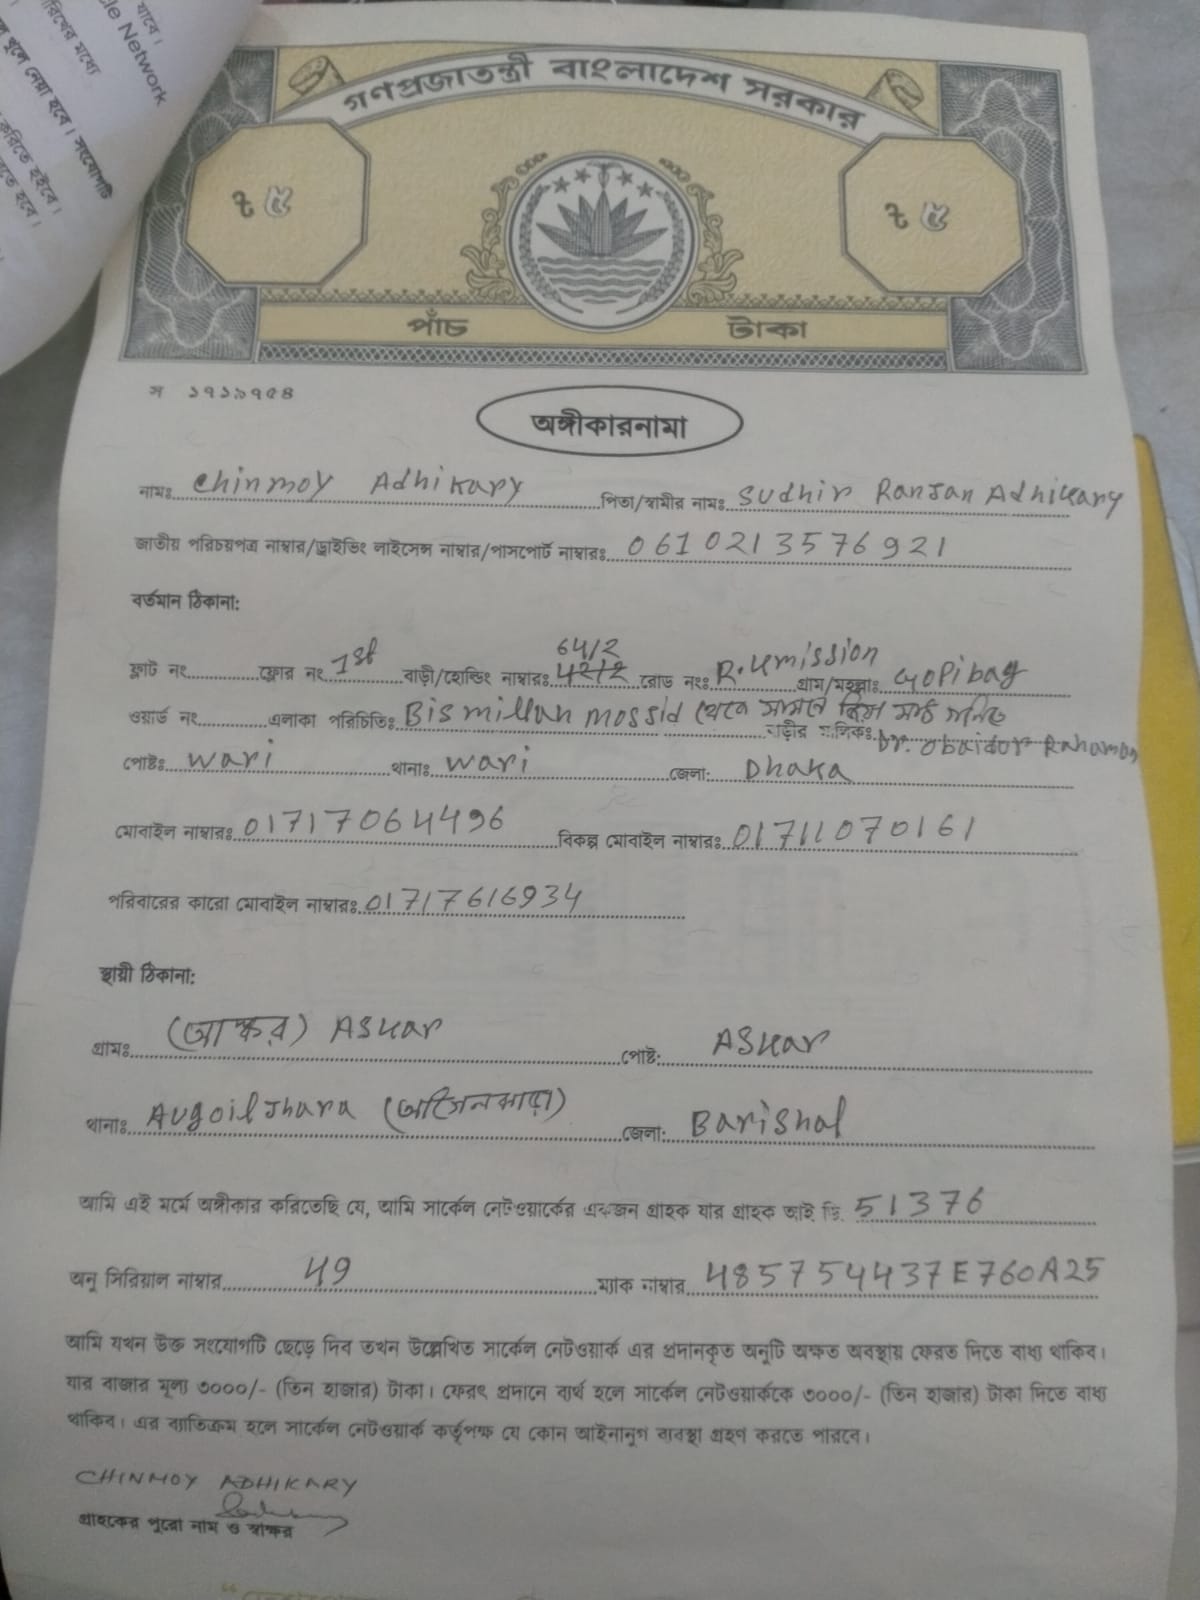 যাবে।
cle Network
রিখের মধ্যে
খুলে নেয়া হবে। সংযোগটি
করিতে হইবে।
তে হবে।
গণপ্রজাতন্ত্রী বাংলাদেশ সরকার
৳ ৫ ৳ ৫
পাঁচ টাকা
স ১৭১৯৭৫৪
অঙ্গীকারনামা
নামঃ Chinmoy Adhikary পিতা/স্বামীর নামঃ Sudhir Ranjan Adhikary
জাতীয় পরিচয়পত্র নাম্বার/ড্রাইভিং লাইসেন্স নাম্বার/পাসপোর্ট নাম্বারঃ 0610213576921
বর্তমান ঠিকানা:
64/2
ফ্লাট নং ফ্লোর নং 1st বাড়ী/হোল্ডিং নাম্বারঃ রোড নংঃ R.K mission গ্রাম/মহল্লাঃ Gopibag
ওয়ার্ড নং এলাকা পরিচিতিঃ Bismillah mossid থেকে সামনে
বাড়ীর মালিকঃ Dr. Obaidur Rahaman
পোষ্টঃ Wari থানাঃ Wari জেলা: Dhaka
মোবাইল নাম্বারঃ 01717064496 বিকল্প মোবাইল নাম্বারঃ 01711070161
পরিবারের কারো মোবাইল নাম্বারঃ 01717616934
স্থায়ী ঠিকানা:
গ্রামঃ (আস্কর) ASKar পোষ্ট: ASKar
থানাঃ Augoil Jhara জেলা: Barishal
আমি এই মর্মে অঙ্গীকার করিতেছি যে, আমি সার্কেল নেটওয়ার্কের একজন গ্রাহক যার গ্রাহক আই ডি. 51376
অনু সিরিয়াল নাম্বার 49 ম্যাক নাম্বার 485754437E760A25
আমি যখন উক্ত সংযোগটি ছেড়ে দিব তখন উল্লেখিত সার্কেল নেটওয়ার্ক এর প্রদানকৃত অনুটি অক্ষত অবস্থায় ফেরত দিতে বাধ্য থাকিব।
যার বাজার মূল্য ৩০০০/- (তিন হাজার) টাকা। ফেরৎ প্রদানে ব্যর্থ হলে সার্কেল নেটওয়ার্ককে ৩০০০/- (তিন হাজার) টাকা দিতে বাধ্য
থাকিব। এর ব্যাতিক্রম হলে সার্কেল নেটওয়ার্ক কর্তৃপক্ষ যে কোন আইনানুগ ব্যবস্থা গ্রহণ করতে পারবে।
CHINMOY ADHIKARY
গ্রাহকের পুরো নাম ও স্বাক্ষর